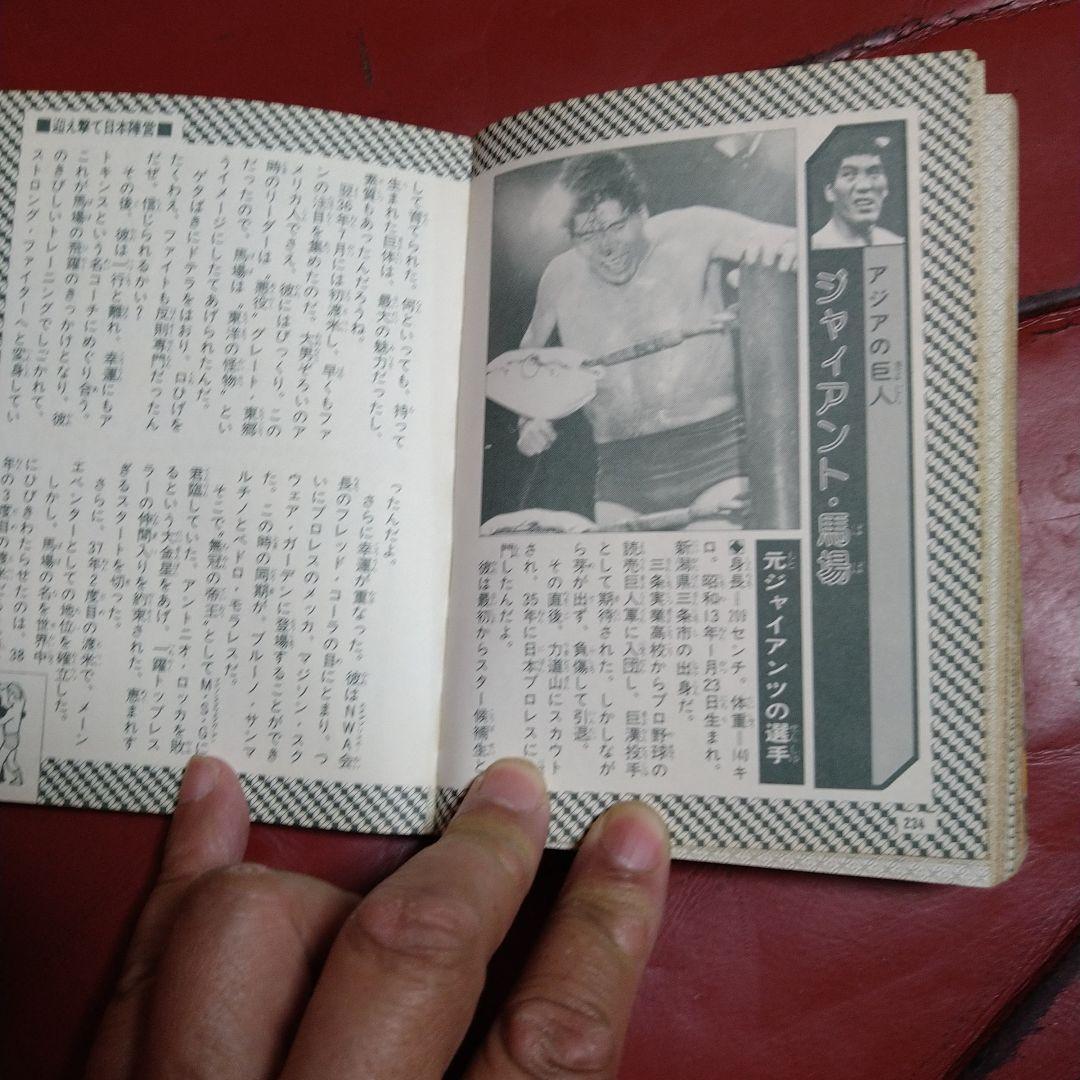 アジアの巨人
ジャイアント・馬場
元ジャイアンツの選手
◆身長―209センチ。体重―140キ
ロ。昭和13年1月23日生まれ。
新潟県三条市の出身だ。
三条実業高校からプロ野球の
読売巨人軍に入団し、巨漢投手
として期待された。しかしなが
ら芽が出ず、負傷して引退。
その直後、力道山にスカウト
され、35年に日本プロレスに入
門したんだよ。
彼は最初からスター候補生と
234
■迎え撃て日本陣営■
して育てられた。何といっても、持って
生まれた巨体は、最大の魅力だったし、
素質もあったんだろうね。
翌36年7月には初渡米し、早くもファ
ンの注目を集めたのだ。大男ぞろいのア
メリカ人でさえ、彼にはびっくり。この
時のリーダーは〝悪役〟グレート・東郷
だったので、馬場は〝東洋の怪物〟とい
うイメージにしたてあげられたんだ。
ゲタばきにドテラをはおり、口ひげを
たくわえ、ファイトも反則専門だったん
だぜ。信じられるかい？
その後、彼は一行と離れ、幸運にもア
トキンスという名コーチにめぐり合う。
これが馬場の飛躍のきっかけとなり、彼
のきびしいトレーニングでしごかれて、
ストロング・ファイターへと変身してい
ったんだよ。
さらに幸運が重なった。彼はNWA会
長のフレッド・コーラの目にとまり、つ
いにプロレスのメッカ、マジソン・スク
ウェア・ガーデンに登場することができ
た。この時の同期が、ブルーノ・サンマ
ルチノとペドロ・モラレスだ。
そこで〝無冠の帝王〟としてM・S・Gに
君臨していた。アントニオ・ロッカを敗
るという大金星をあげ、一躍トップレス
ラーの仲間入りを約束された。恵まれす
ぎるスタートを切った。
さらに、37年2度目の渡米で、メーン
エベンターとしての地位を確立した。
しかし、馬場の名を世界中
にひびきわたらせたのは、38
年の3度目の